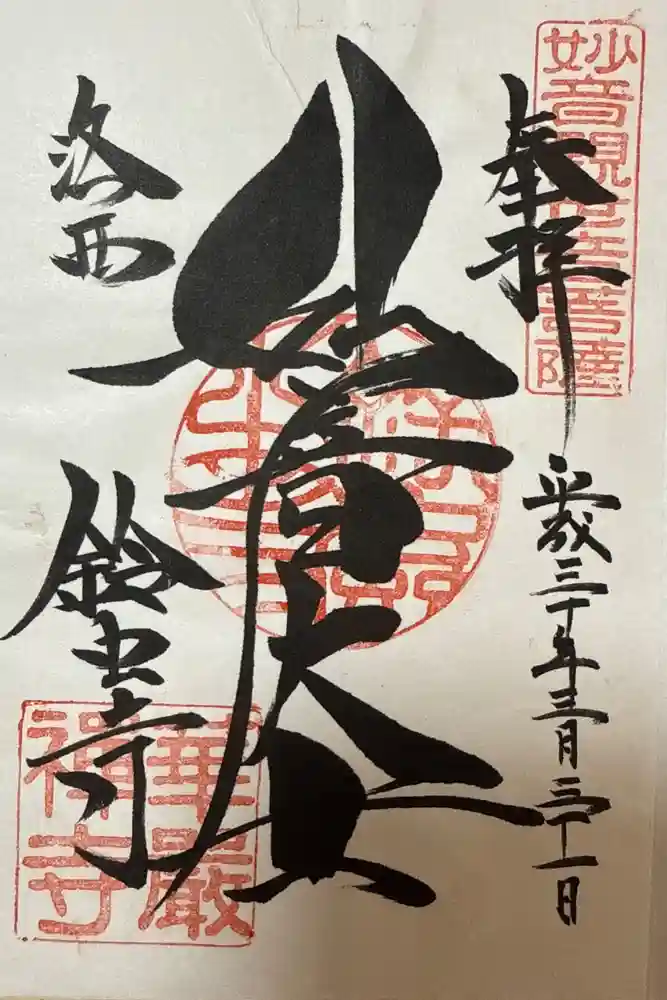 奉拝
妙音観世音菩薩
平成三十年三月三十一日
妙音大士
洛西
鈴虫寺
華厳禅寺